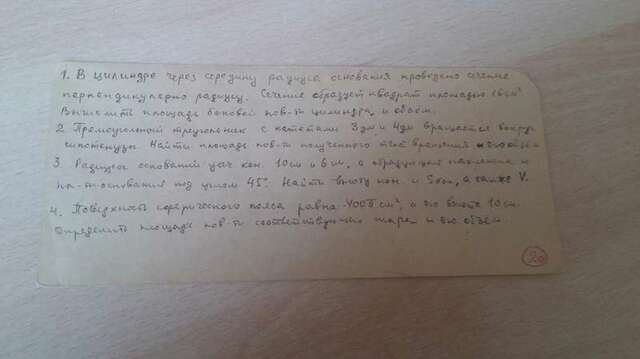 1. В цилиндре через середину радиуса основания проведено сечение
перпендикулярно радиусу. Сечение образует квадрат площадью 16 см²
Вычислить площадь боковой пов-ти цилиндра и объем.
2. Прямоугольный треугольник с катетами 3 дм и 4 дм вращается вокруг
гипотенузы. Найти площадь пов-ти полученного тела вращения и его объем
3. Радиусы оснований усеч кон. 10 см и 6 см, а образующая наклонена к
пл-ти основания под углом 45°. Найти высоту кон. и Sбок, а также V.
4. Поверхность сферического пояса равна 400π см², а его высота 10 см.
Определить площадь пов-ти соответствующего шара и его объем.
20